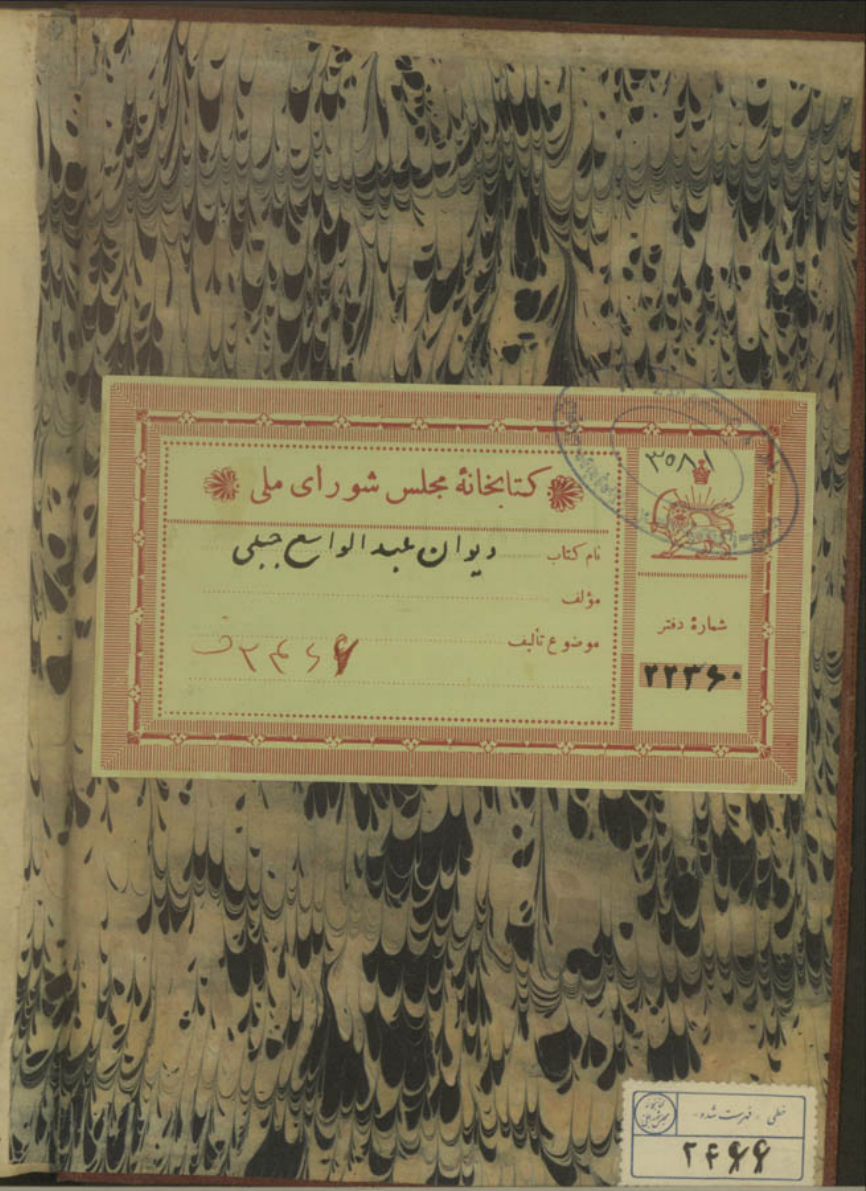 کتابخانهٔ مجلس شورای ملی
نام کتاب دیوان عبدالواسع جبلی
مؤلف
موضوع تألیف
شمارهٔ دفتر
۲۲۳۶۰
خطی - فهرست شده -
۲۴۶۶